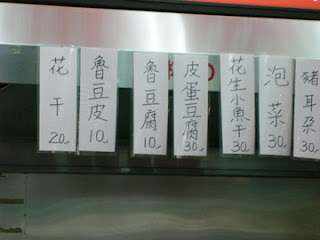 花干
20.
魯豆皮
10.
魯豆腐
10.
皮蛋豆腐
30.
花生小魚干
30.
泡菜
30.
豬耳朶
30.